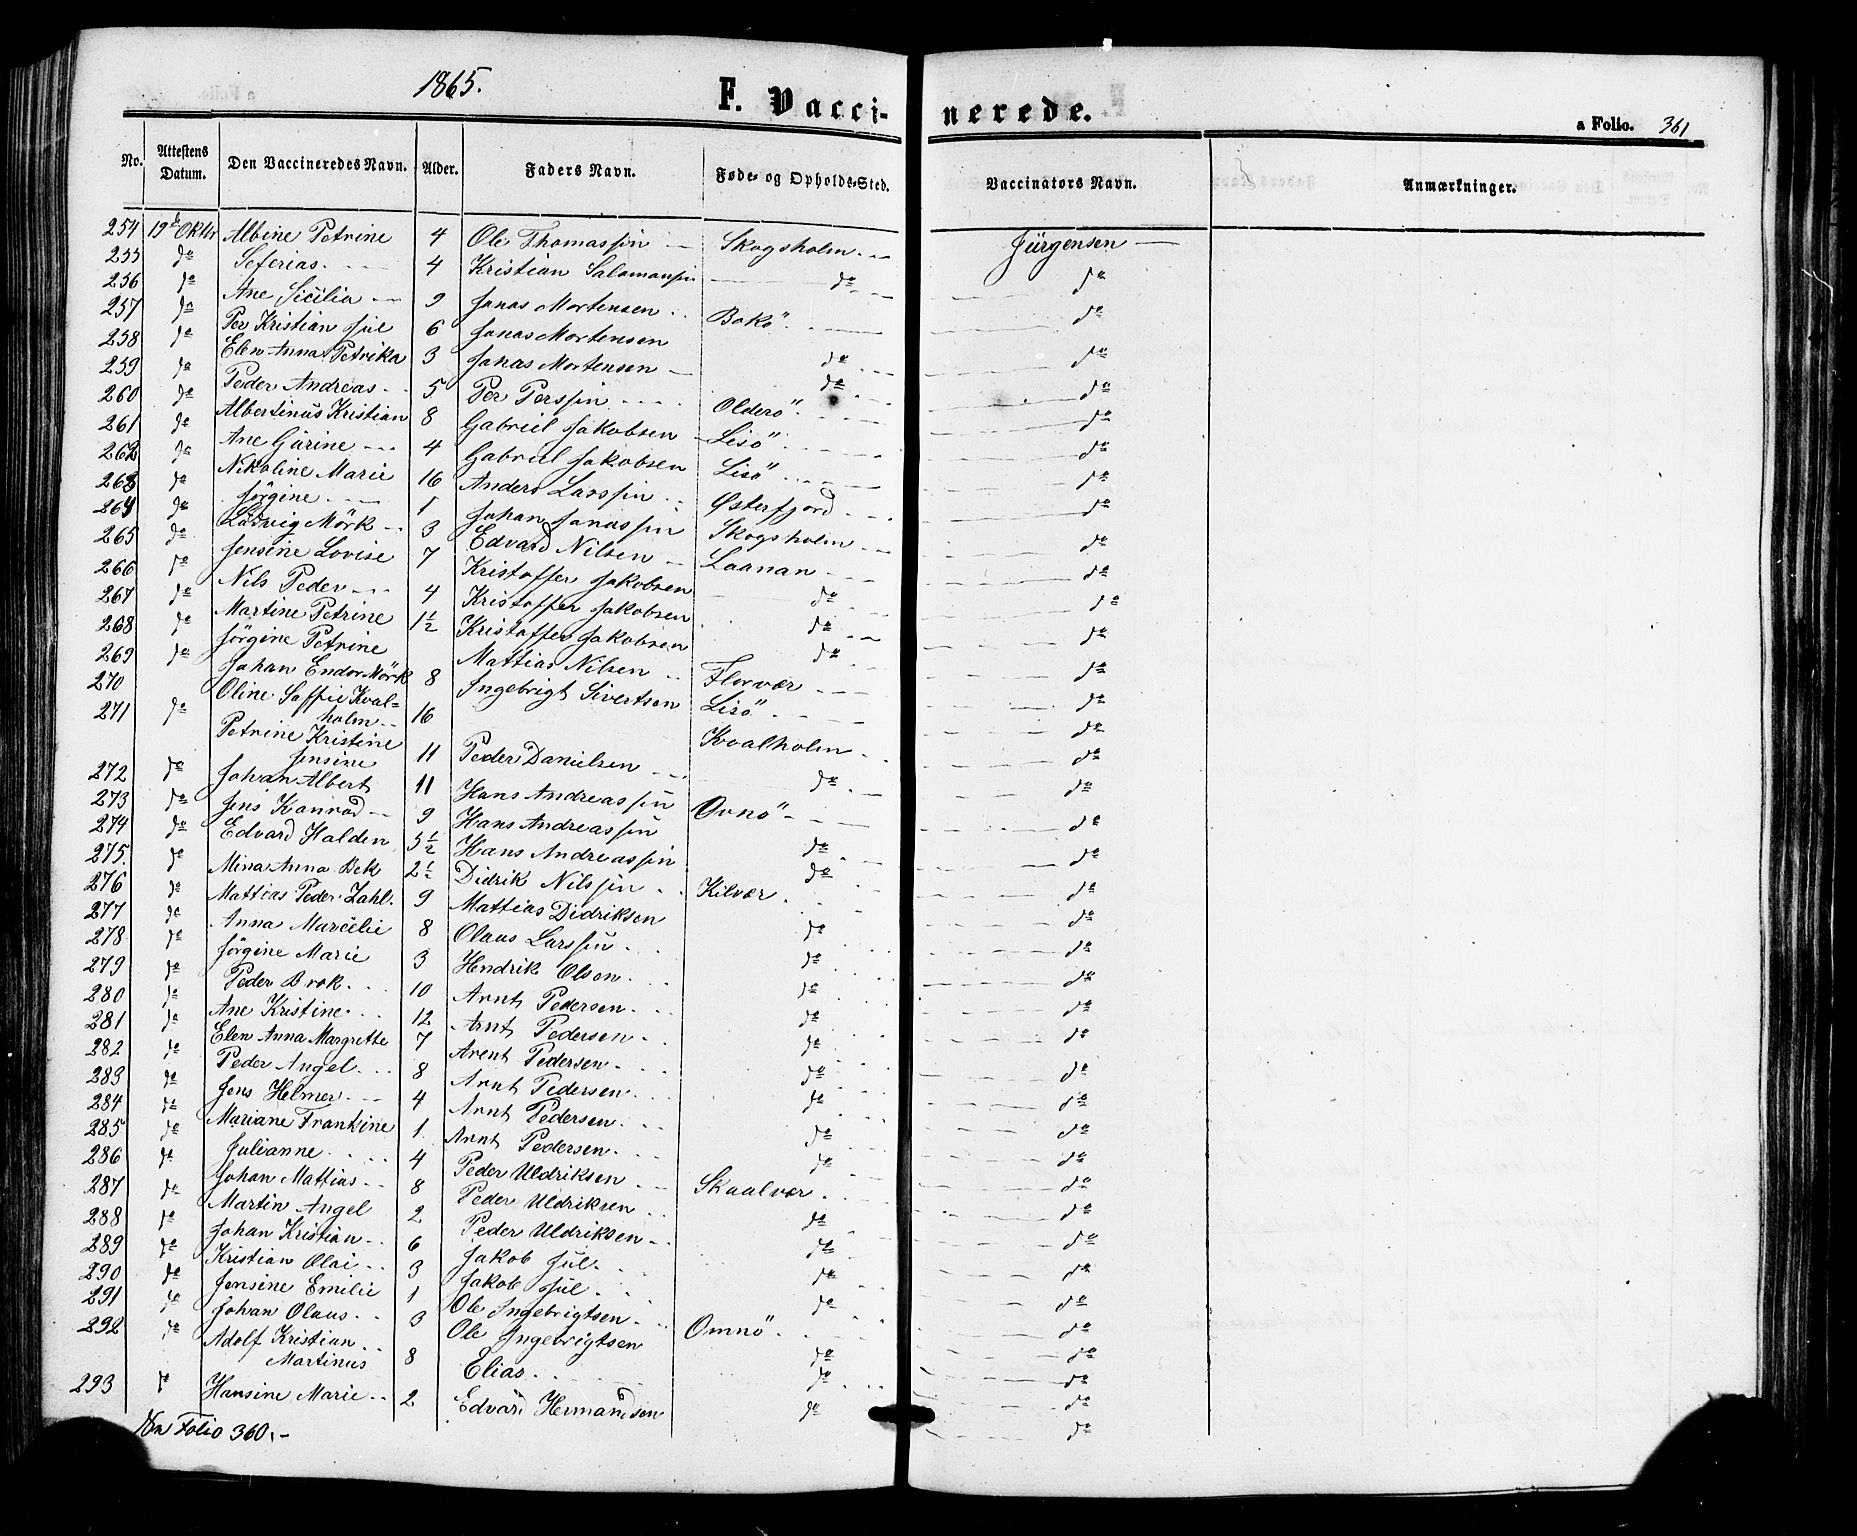 1865.
F. Vaccinerede.
a Folio. 361
No. | Attestens Datum. | Den Vaccineredes Navn. | Alder. | Faders Navn. | Føde- og Opholds-Sted. | Vaccinators Navn. | Anmærkninger.
254 19de Oktbr Albine Petrine 4 Ole Thomassøn Skogsholm Jürgensen
255 do Seferias 4 Kristian Salamonsøn do do
256 do Ane Sicilia 9 Jonas Mortensen Bokö do
257 do Per Kristian Jul 6 Jonas Mortensen do do
258 do Elen Anna Petrika 3 Jonas Mortensen do do
259 do Peder Andreas 5 Per Perssøn Olderö do
260 do Albertinus Kristian 8 Gabriel Jakobsen Lisö do
261 do Ane Gurine 4 Gabriel Jakobsen Lisö do
262 do Nikoline Marie 16 Anders Larssøn Østerfjord do
263 do Jörgine 1 Johan Jonassøn Skogsholm do
264 do Ludvig Mörk 3 Edvard Nilsen Laanan do
265 do Jensine Lovise 7 Kristoffer Jakobsen do do
266 do Nils Peder 4 Kristoffer Jakobsen do do
267 do Martine Petrine 1½ Kristoffer Jakobsen do do
268 do Jörgine Petrine Mattias Nilsen Flovær do
269 do Johan Endor Mörk 8 Ingebrigt Sivertsen Lisö do
270 Oline Soffie Kval-
holm 16 Kvalholm do
271 do Petrine Kristine
Jensine 11 Peder Danielsen do do
272 do Johan Albert 11 Hans Andreassøn Ovnö do
273 do Jens Konrad 9 Hans Andreassøn do do
274 do Edvard Halden 5½ Hans Andreassøn do do
275. do Mina Anna Bek 2½ Didrik Nilssøn Kilvær do
276 do Mattias Peder Zahl 9 Mattias Didriksen do do
277 do Anna Marcilie 8 Olaus Larssøn do do
278 do Jörgine Marie 3 Hendrik Olsen do do
279 do Peder Brok 10 Arnt Pedersen do do
280 do Ane Kristine 12 Arnt Pedersen do do
281 do Elen Anna Margrethe 7 Arent Pedersen do do
282 do Peder Angel 8 Arnt Pedersen do do
283 do Jens Helmer 4 Arnt Pedersen do do
284 do Mariane Frantsine 1 Arnt Pedersen do do
285 do Julianne 4 Peder Uldriksen Skaalvær do
286 do Johan Mattias 8 Peder Uldriksen do do
287 do Martin Angel 2 Peder Uldriksen do do
288 do Johan Kristian 6 Jakob Jul do do
289 do Kristian Olai 3 Jakob Jul do do
290 do Jensine Emilie 1 Ole Ingebrigtsen Omnö do
291 do Johan Olaus 3 Ole Ingebrigtsen do do
292 do Adolf Kristian
Martinus 8 Elias do do
293 do Hansine Marie 2 Edvard Hermandsen do do
Folio 360.